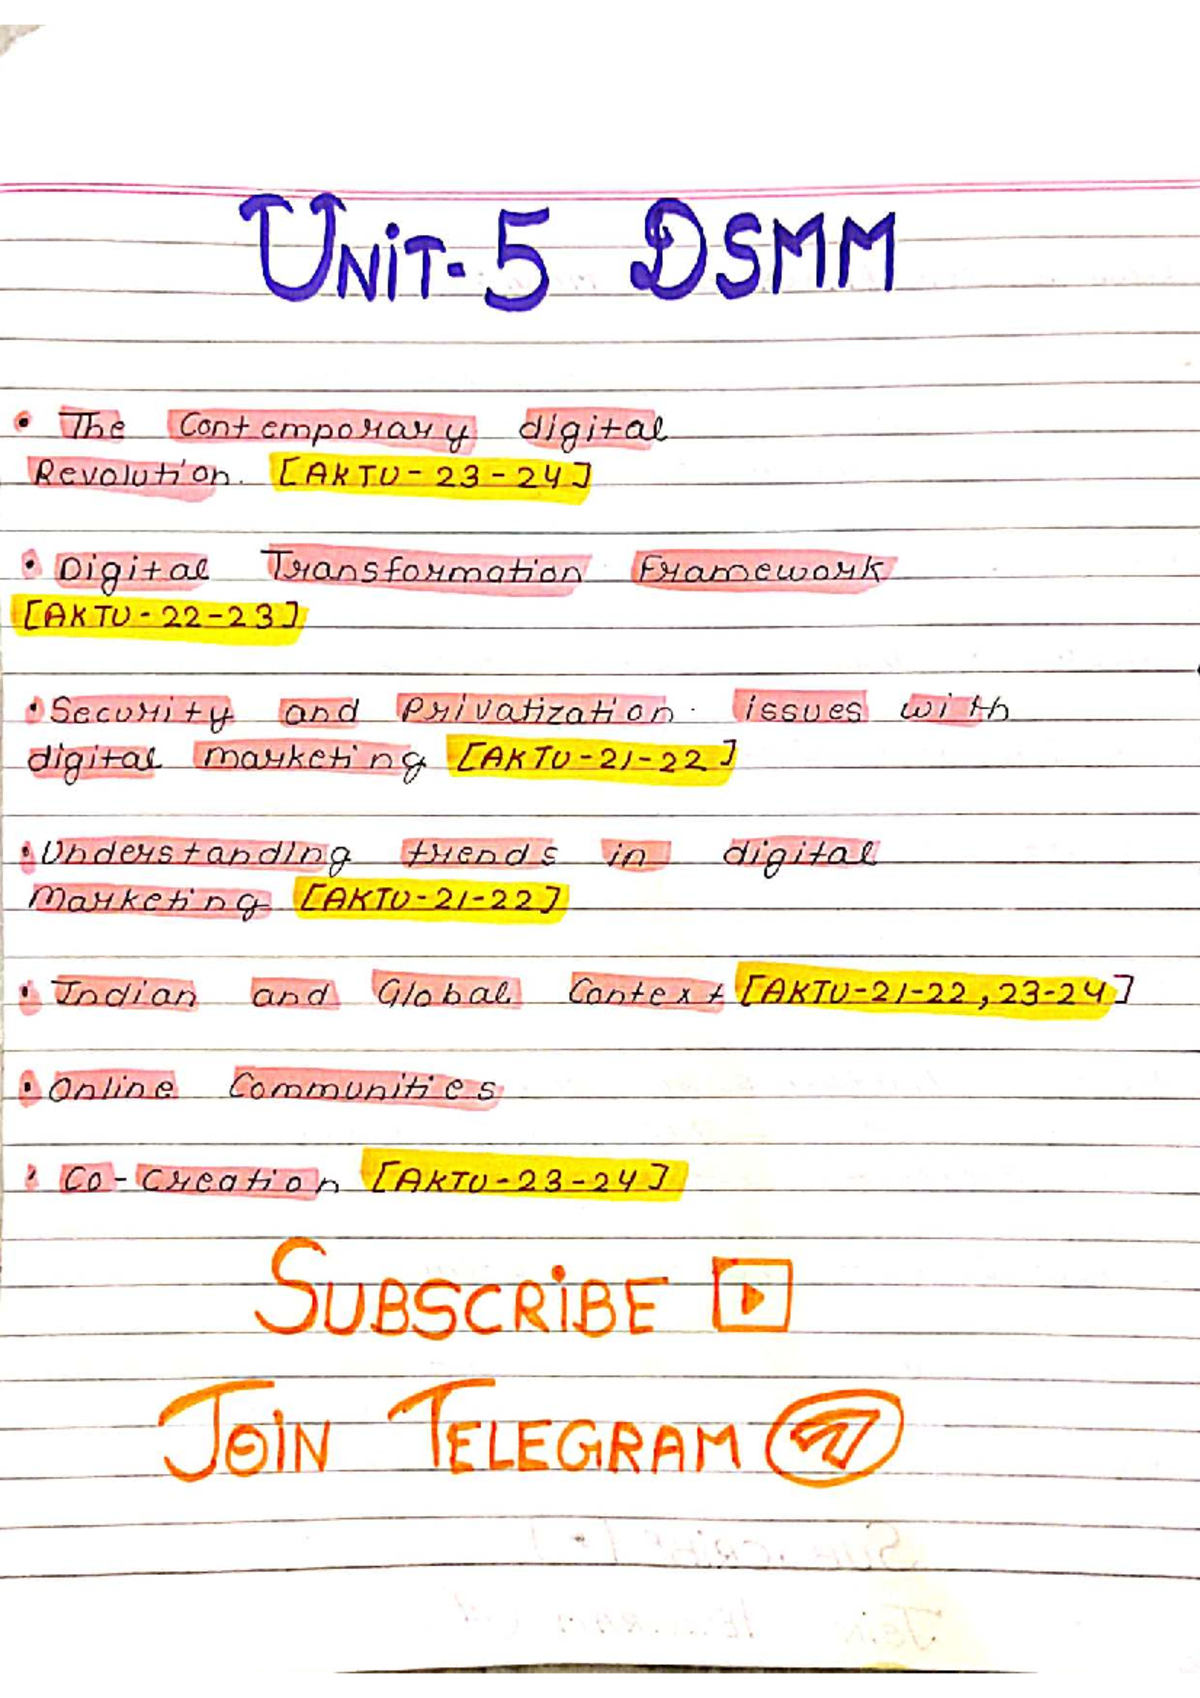 UNiT-5 DSMM
• The Contemporary digital
Revolution. [AKTU-23-24]
• Digital Transformation Framework
[AKTU-22-23]
• Security and Privatization issues with
digital marketing [AKTU-21-22]
• Understanding trends in digital
Marketing [AKTU-21-22]
• Indian and Global Context [AKTU-21-22, 23-24]
• Online Communities
• Co-Creation [AKTU-23-24]
SUBSCRiBE
JOiN TELEGRAM